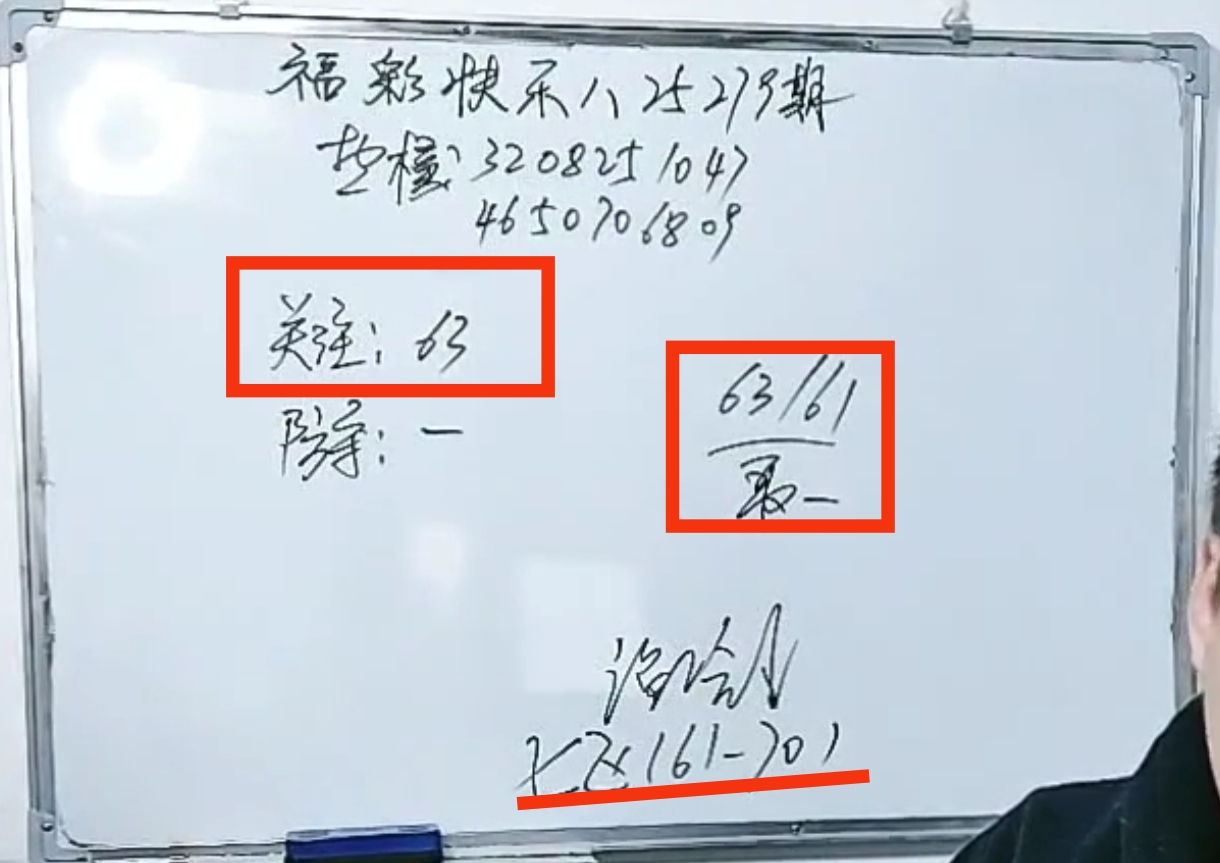 福彩快乐八25279期
垫檯:3208251047
4650706809
关注:63
防守:一
63/61
取一
七区(61-70)